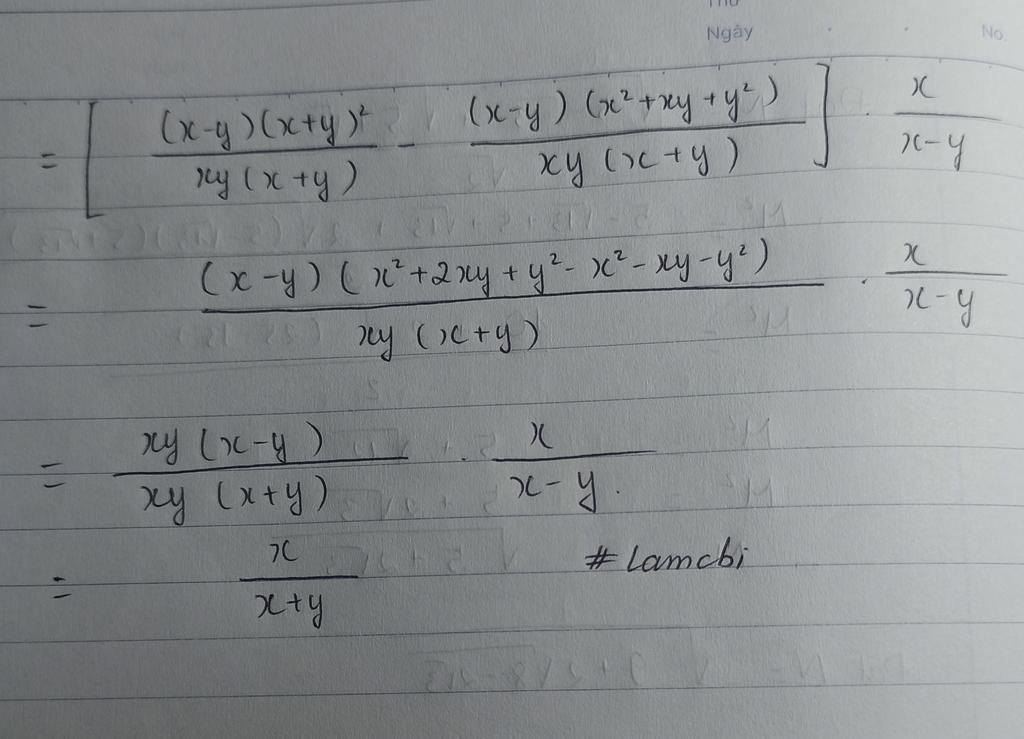 Thứ
Ngày No.
= [ \frac{(x-y)(x+y)^2}{xy(x+y)} - \frac{(x-y)(x^2+xy+y^2)}{xy(x+y)} ] \cdot \frac{x}{x-y}
= \frac{(x-y)(x^2+2xy+y^2-x^2-xy-y^2)}{xy(x+y)} \cdot \frac{x}{x-y}
= \frac{xy(x-y)}{xy(x+y)} \cdot \frac{x}{x-y}.
= \frac{x}{x+y} #lamcbi